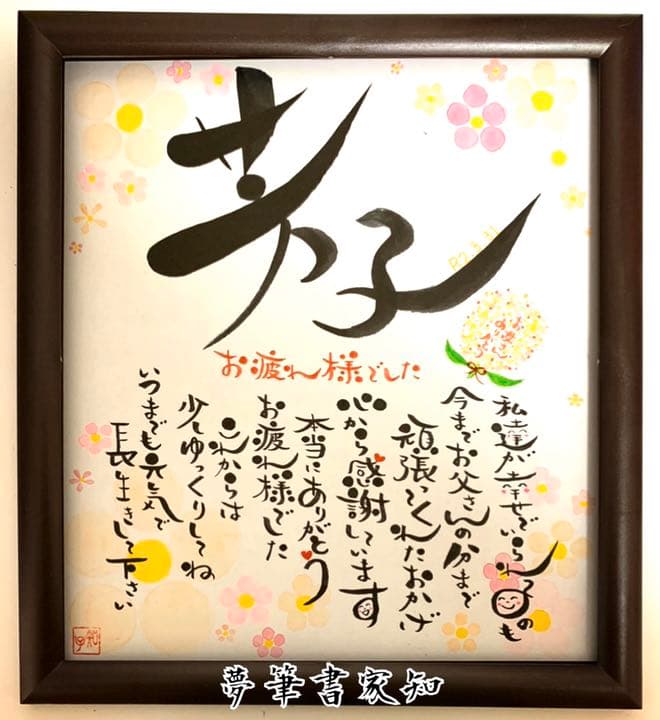 芳子
R2.3.31
お疲れ様でした
私達が幸せでいられるのも
今までお父さんの分まで
頑張ってくれたおかげ
心から感謝しています
本当にありがとう
お疲れ様でした
これからは
少しゆっくりしてね
いつまでも元気で
長生きして下さい
夢筆書家知